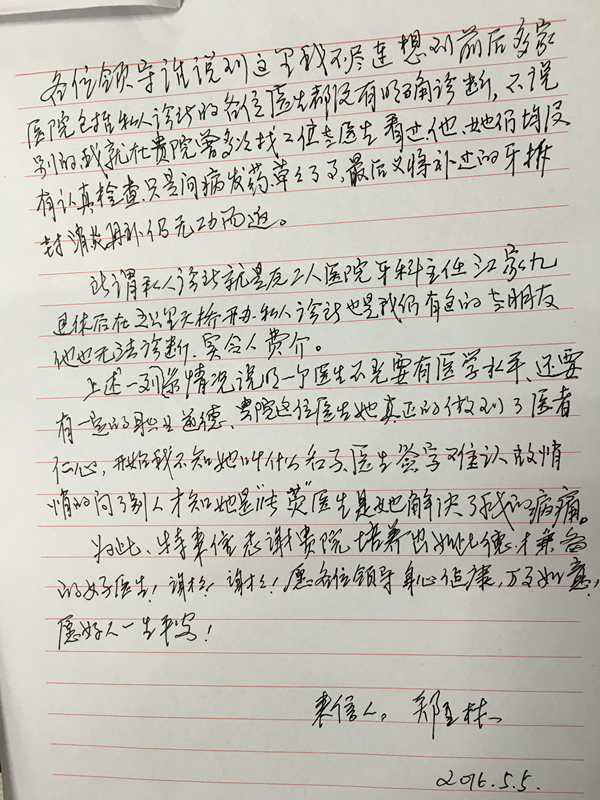 各位领导谁说到这里我不尽连想到前后多家
医院包括私人诊所的各位医生都没有明确诊断,不说
别的,我就在贵院曾多次找二位老医生看过他、她们均没
有认真检查只是问病发药,草草了了,最后又将补过的牙拆
封消炎再补仍无功而返。
所谓私人诊所就是 工人医院牙科主任江家九
退休后在五里天桥开办私人诊所也是我们有色的老朋友
他也无法诊断、实令人费介。
上述一列 情况说明一个医生不光要有医学水平、还要
有一定的职业道德、贵院这位医生她真正的做到了医者
仁心,开始我不知她叫什么名子,医生签字难认,故悄
悄的问了别人才知她是"张 荧"医生是她解决了我的病痛。
为此、特来信感谢贵院培养出如此德才兼备
的好医生!谢谢!谢谢!愿各位领导身心健康,万事如意,
愿好人一生平安!
来信人。郑玉林
2016.5.5.